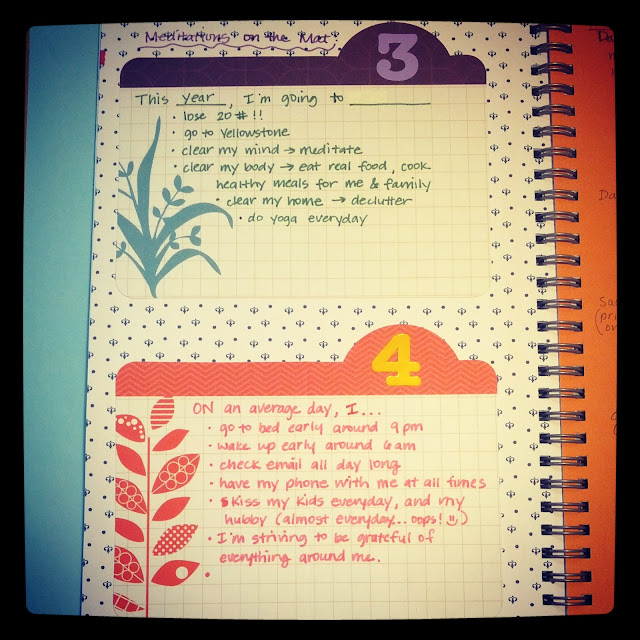 Meditations on the Mat
3
This year, I'm going to ________
• lose 20# !!
• go to Yellowstone
• clear my mind → meditate
• clear my body → eat real food, cook
healthy meals for me & family
• clear my home → declutter
• do yoga everyday
4
ON an average day, I...
• go to bed early around 9pm
• wake up early around 6am
• check email all day long
• have my phone with me at all times
• kiss my kids everyday, and my
hubby (almost everyday.. oops! ☺)
• I'm striving to be grateful of
everything around me.
•
Da